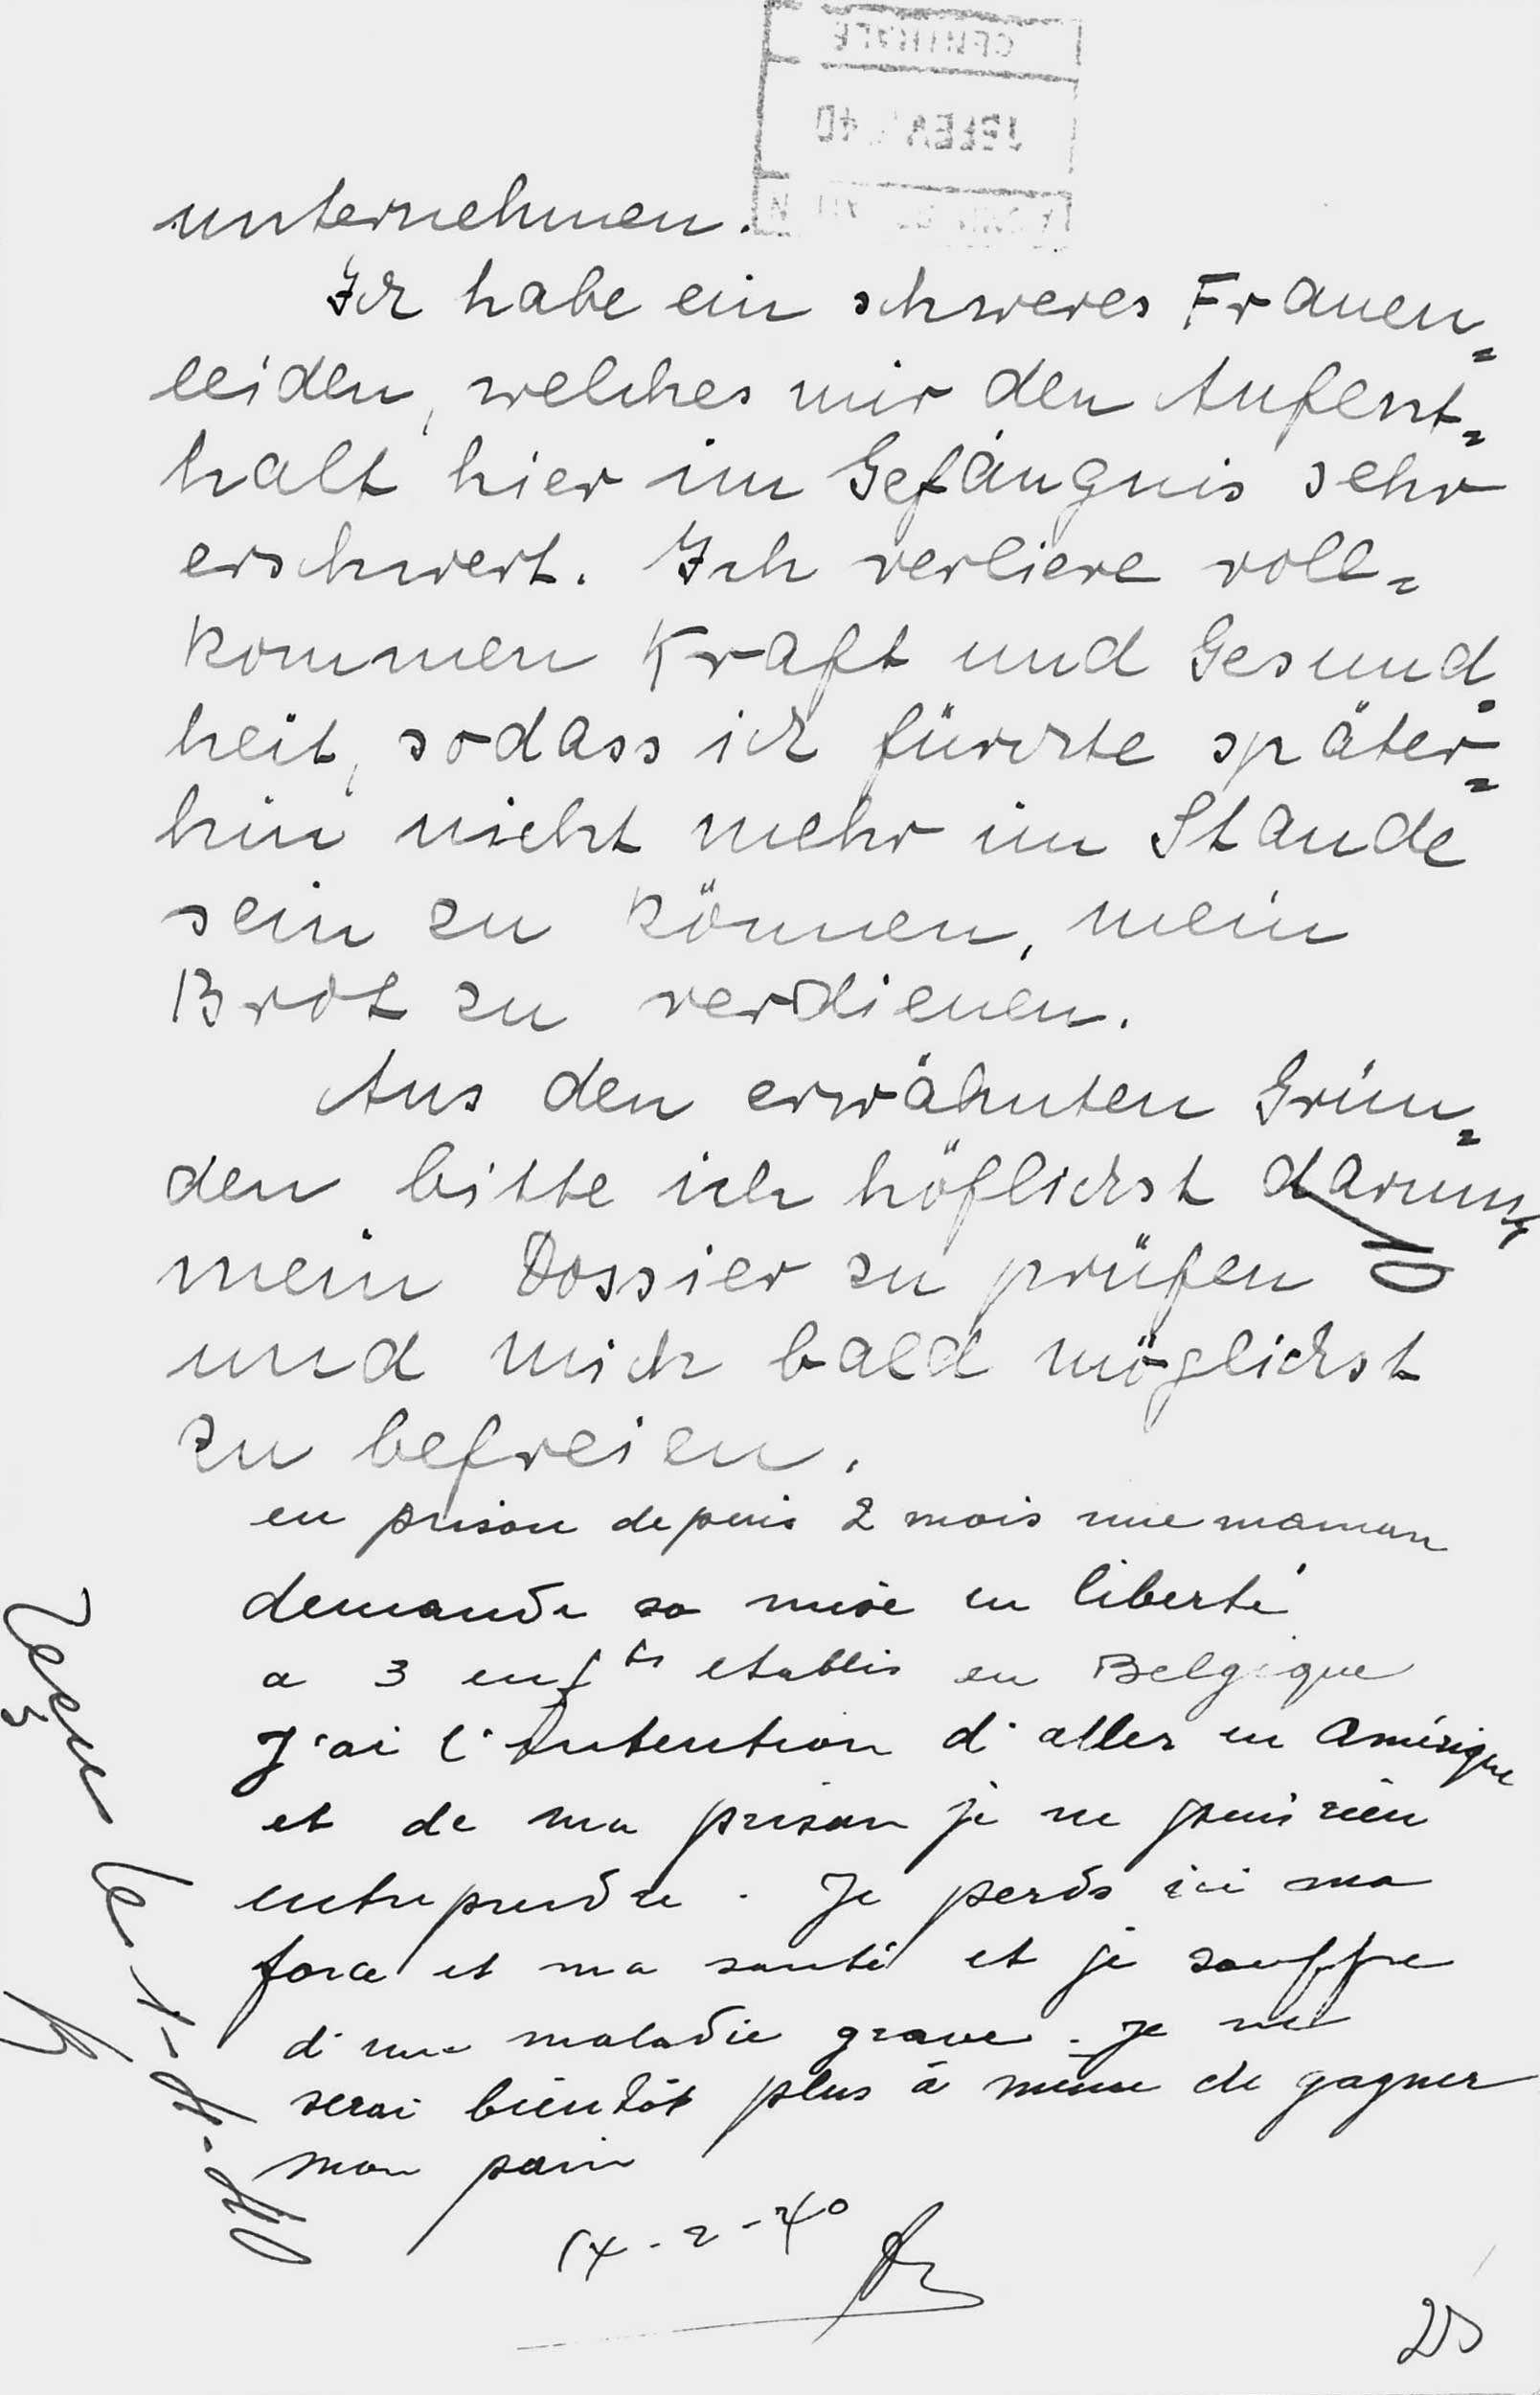 CENTRALE
unternehmen.
Ich habe ein schweres Frauen=
leiden, welches mir den Aufent=
halt hier im Gefängnis sehr
erschwert. Ich verliere voll=
kommen Kraft und Gesund=
heit, sodass ich fürchte später=
hin nicht mehr im Stande
sein zu können, mein
Brot zu verdienen.
Aus den erwähnten Grün=
den bitte ich höflichst darum,
mein Dossier zu prüfen
und mich bald möglichst
zu befreien.
en prison depuis 2 mois une maman
demande sa mise en liberté
a 3 enfts etablis en Belgique
J'ai l'intention d'aller en Amérique
et de ma prison je ne puis rien
entreprendre. Je perds ici ma
force et ma santé et je souffre
d'une maladie grave. Je ne
serai bientôt plus à même de gagner
mon pain
14-2-40
25